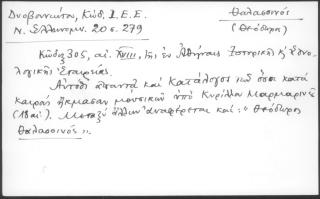 Δυοβουνιώτου, Κώδ. Ι. Ε. Ε.
Θαλασσινός
Ν. Ελληνομν. 20 σ. 279
(Θεόδωρος)
Κώδιξ 305, αἰ. XVIII, τῆς ἐν Ἀθήναις Ἱστορικῆς κ' Ἐθνο-
λογικῆς Ἑταιρείας.
Αὐτόθι ἀπαντᾷ καὶ κατάλογος τῶν ὅσοι κατὰ
καιροὺς ἤκμασαν μουσικῶν ὑπὸ Κυρίλλου Μαρμαρινοῦ
(18 αἰ.). Μεταξὺ ἄλλων ἀναφέρεται καὶ: "Θεόδωρος
Θαλασσινός".